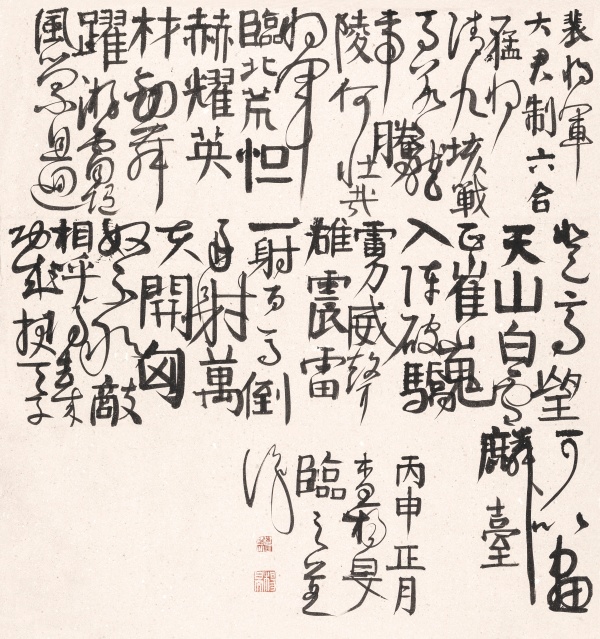 裴将軍
大君制六合
猛将
清九垓戰
馬若龍
虎騰
陵何壮哉
将軍
臨北荒烜
赫耀英
材劒舞
躍游電随
風縈且迴
登高望
天山白雲
正崔嵬
入陣破驕
虜威聲
雄震雷
一射百馬倒
再射萬
夫開匈
奴不敢敵
相呼歸去来
功成報天子
可以畫
麟臺
丙申正月
楊旻
臨之並